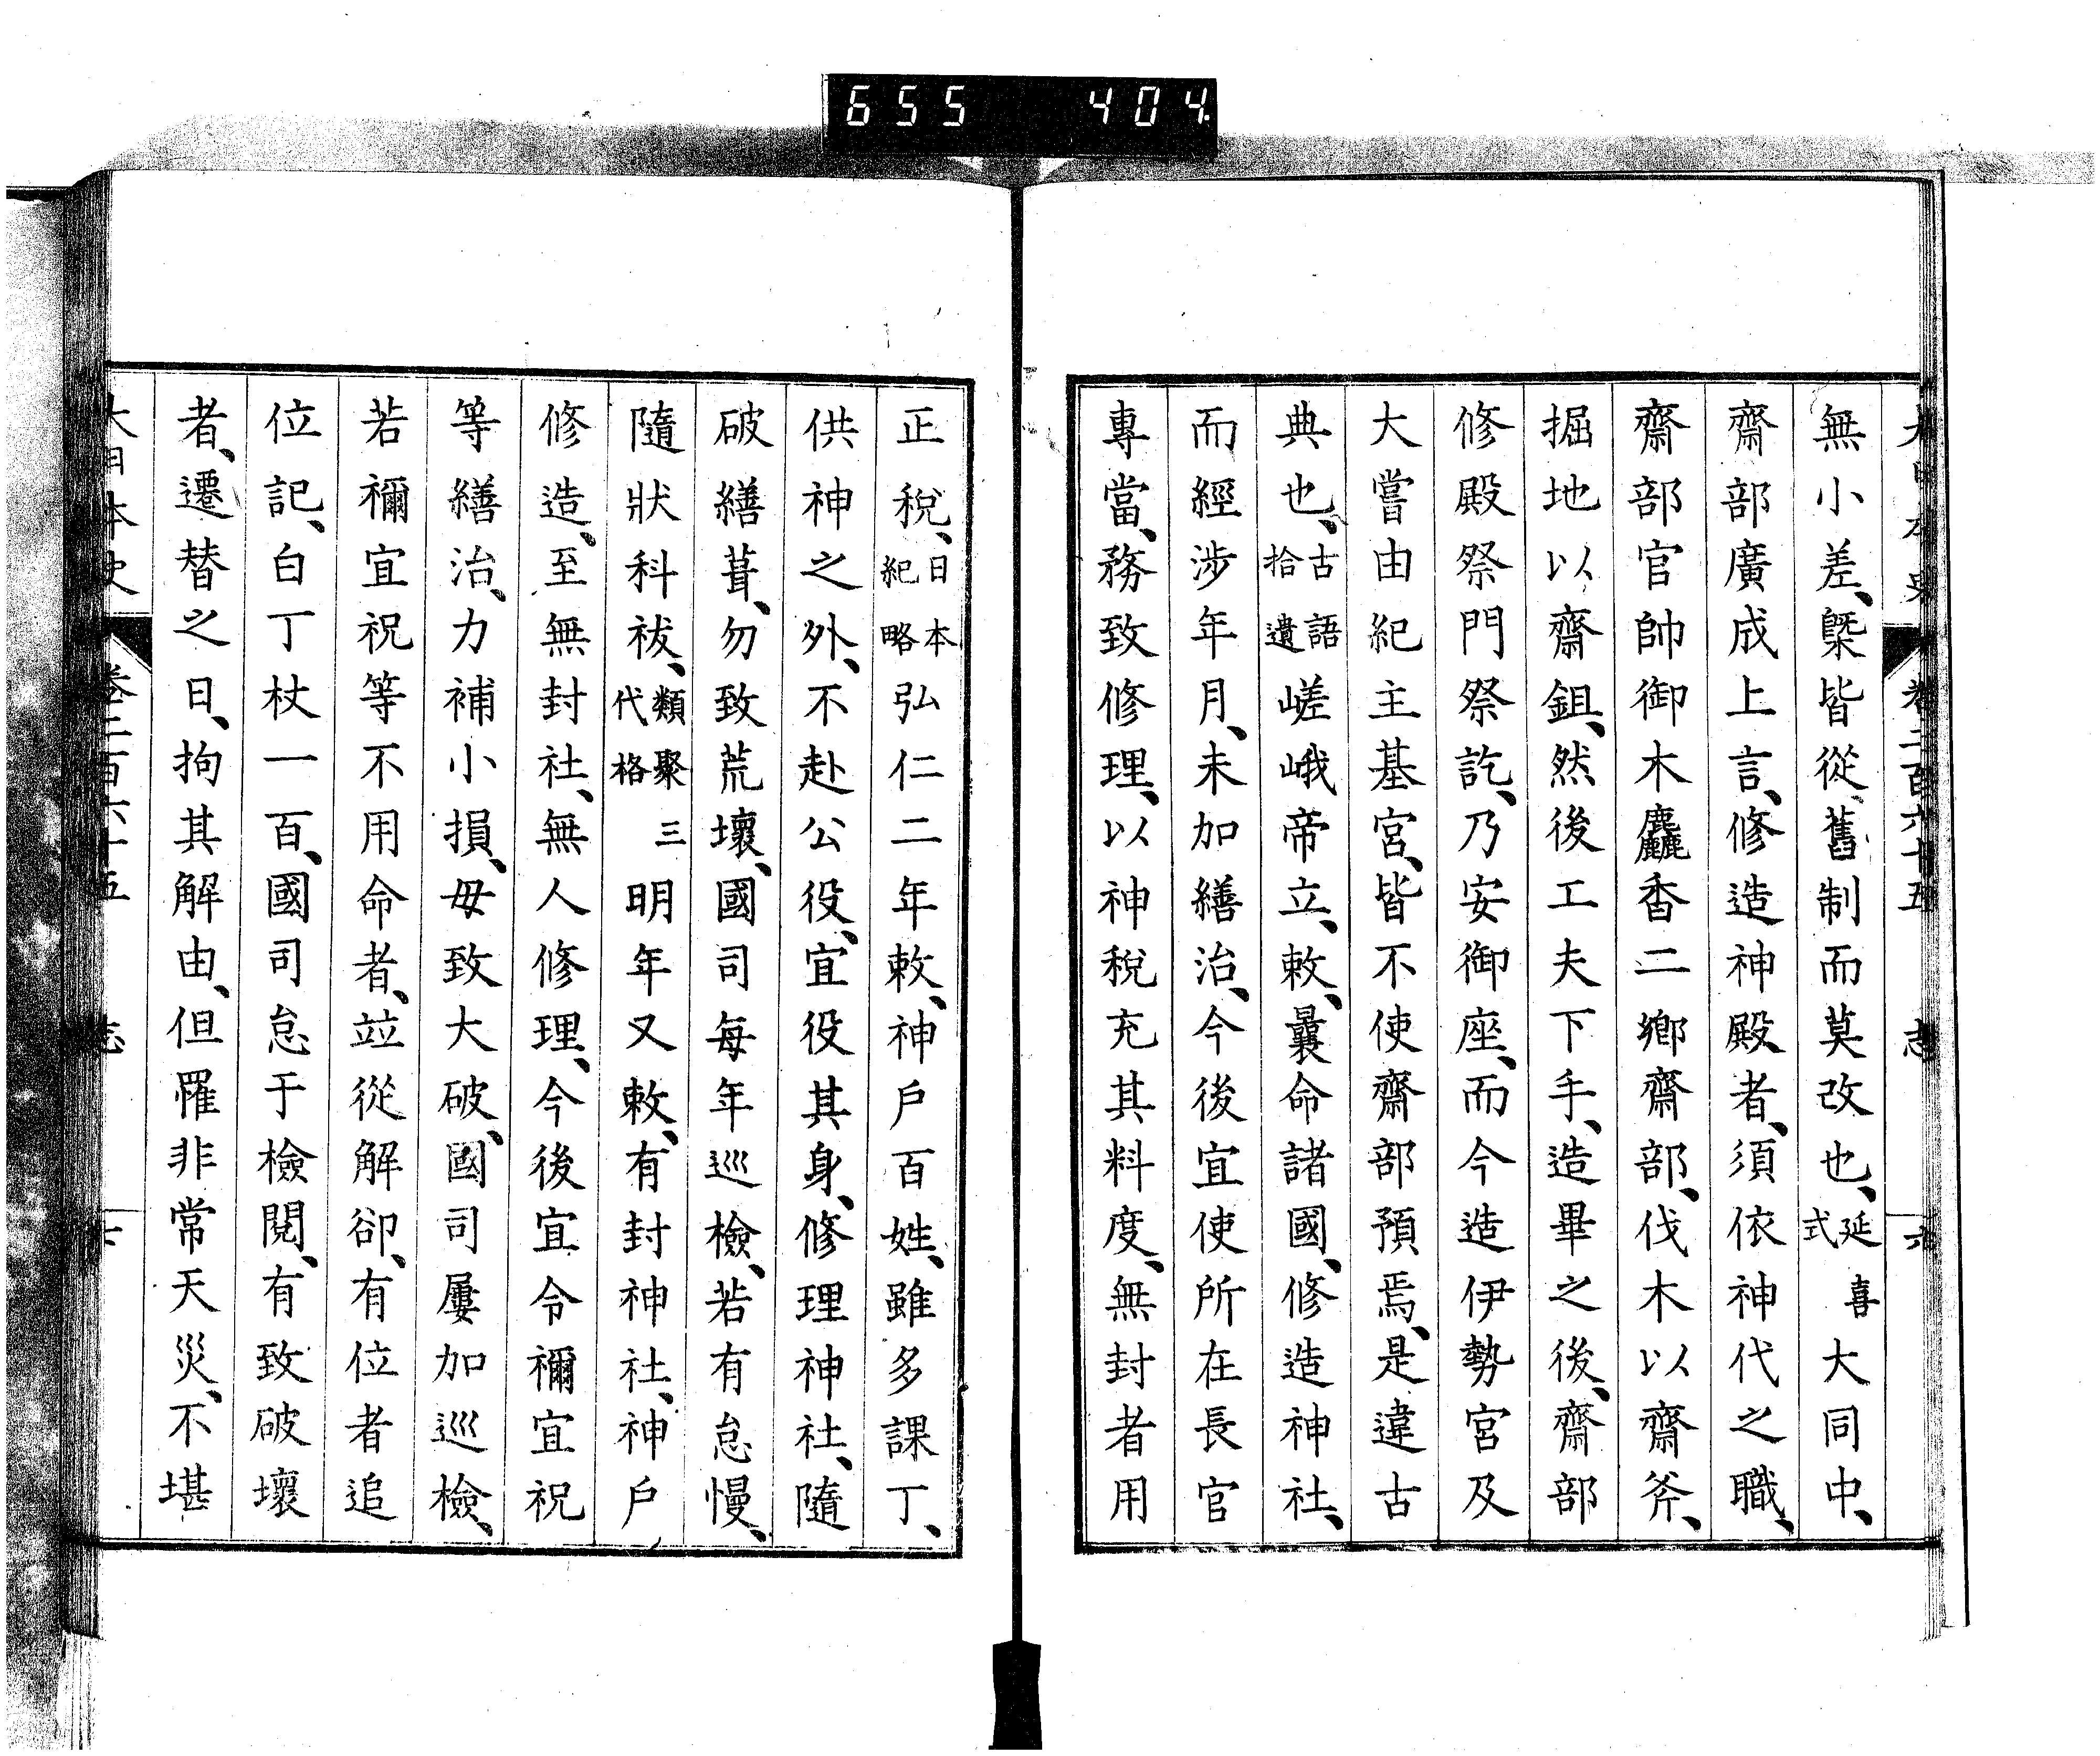 655 404
大日本史 卷二百六十五 志 六
無小差、槩皆從舊制而莫改也、延喜式大同中、
齋部廣成上言、修造神殿者、須依神代之職、
齋部官帥御木麤香二鄕齋部、伐木以齋斧、
掘地以齋鉏、然後工夫下手、造畢之後、齋部
修殿祭門祭訖、乃安御座、而今造伊勢宮及
大嘗由紀主基宮、皆不使齋部預焉、是違古
典也、古語拾遺嵯峨帝立、敕、曩命諸國、修造神社、
而經涉年月、未加繕治、今後宜使所在長官
專當、務致修理、以神稅充其料度、無封者用
正稅、日本紀略弘仁二年敕、神戶百姓、雖多課丁、
供神之外、不赴公役、宜役其身、修理神社、隨
破繕葺、勿致荒壞、國司每年巡檢、若有怠慢、
隨狀科祓、類聚三代格明年又敕、有封神社、神戶
修造、至無封社、無人修理、今後宜令禰宜祝
等繕治、力補小損、毋致大破、國司屢加巡檢、
若禰宜祝等不用命者、竝從解卻、有位者追
位記、白丁杖一百、國司怠于檢閱、有致破壞
者、遷替之日、拘其解由、但罹非常天災、不堪
大日本史 卷二百六十五 志 七